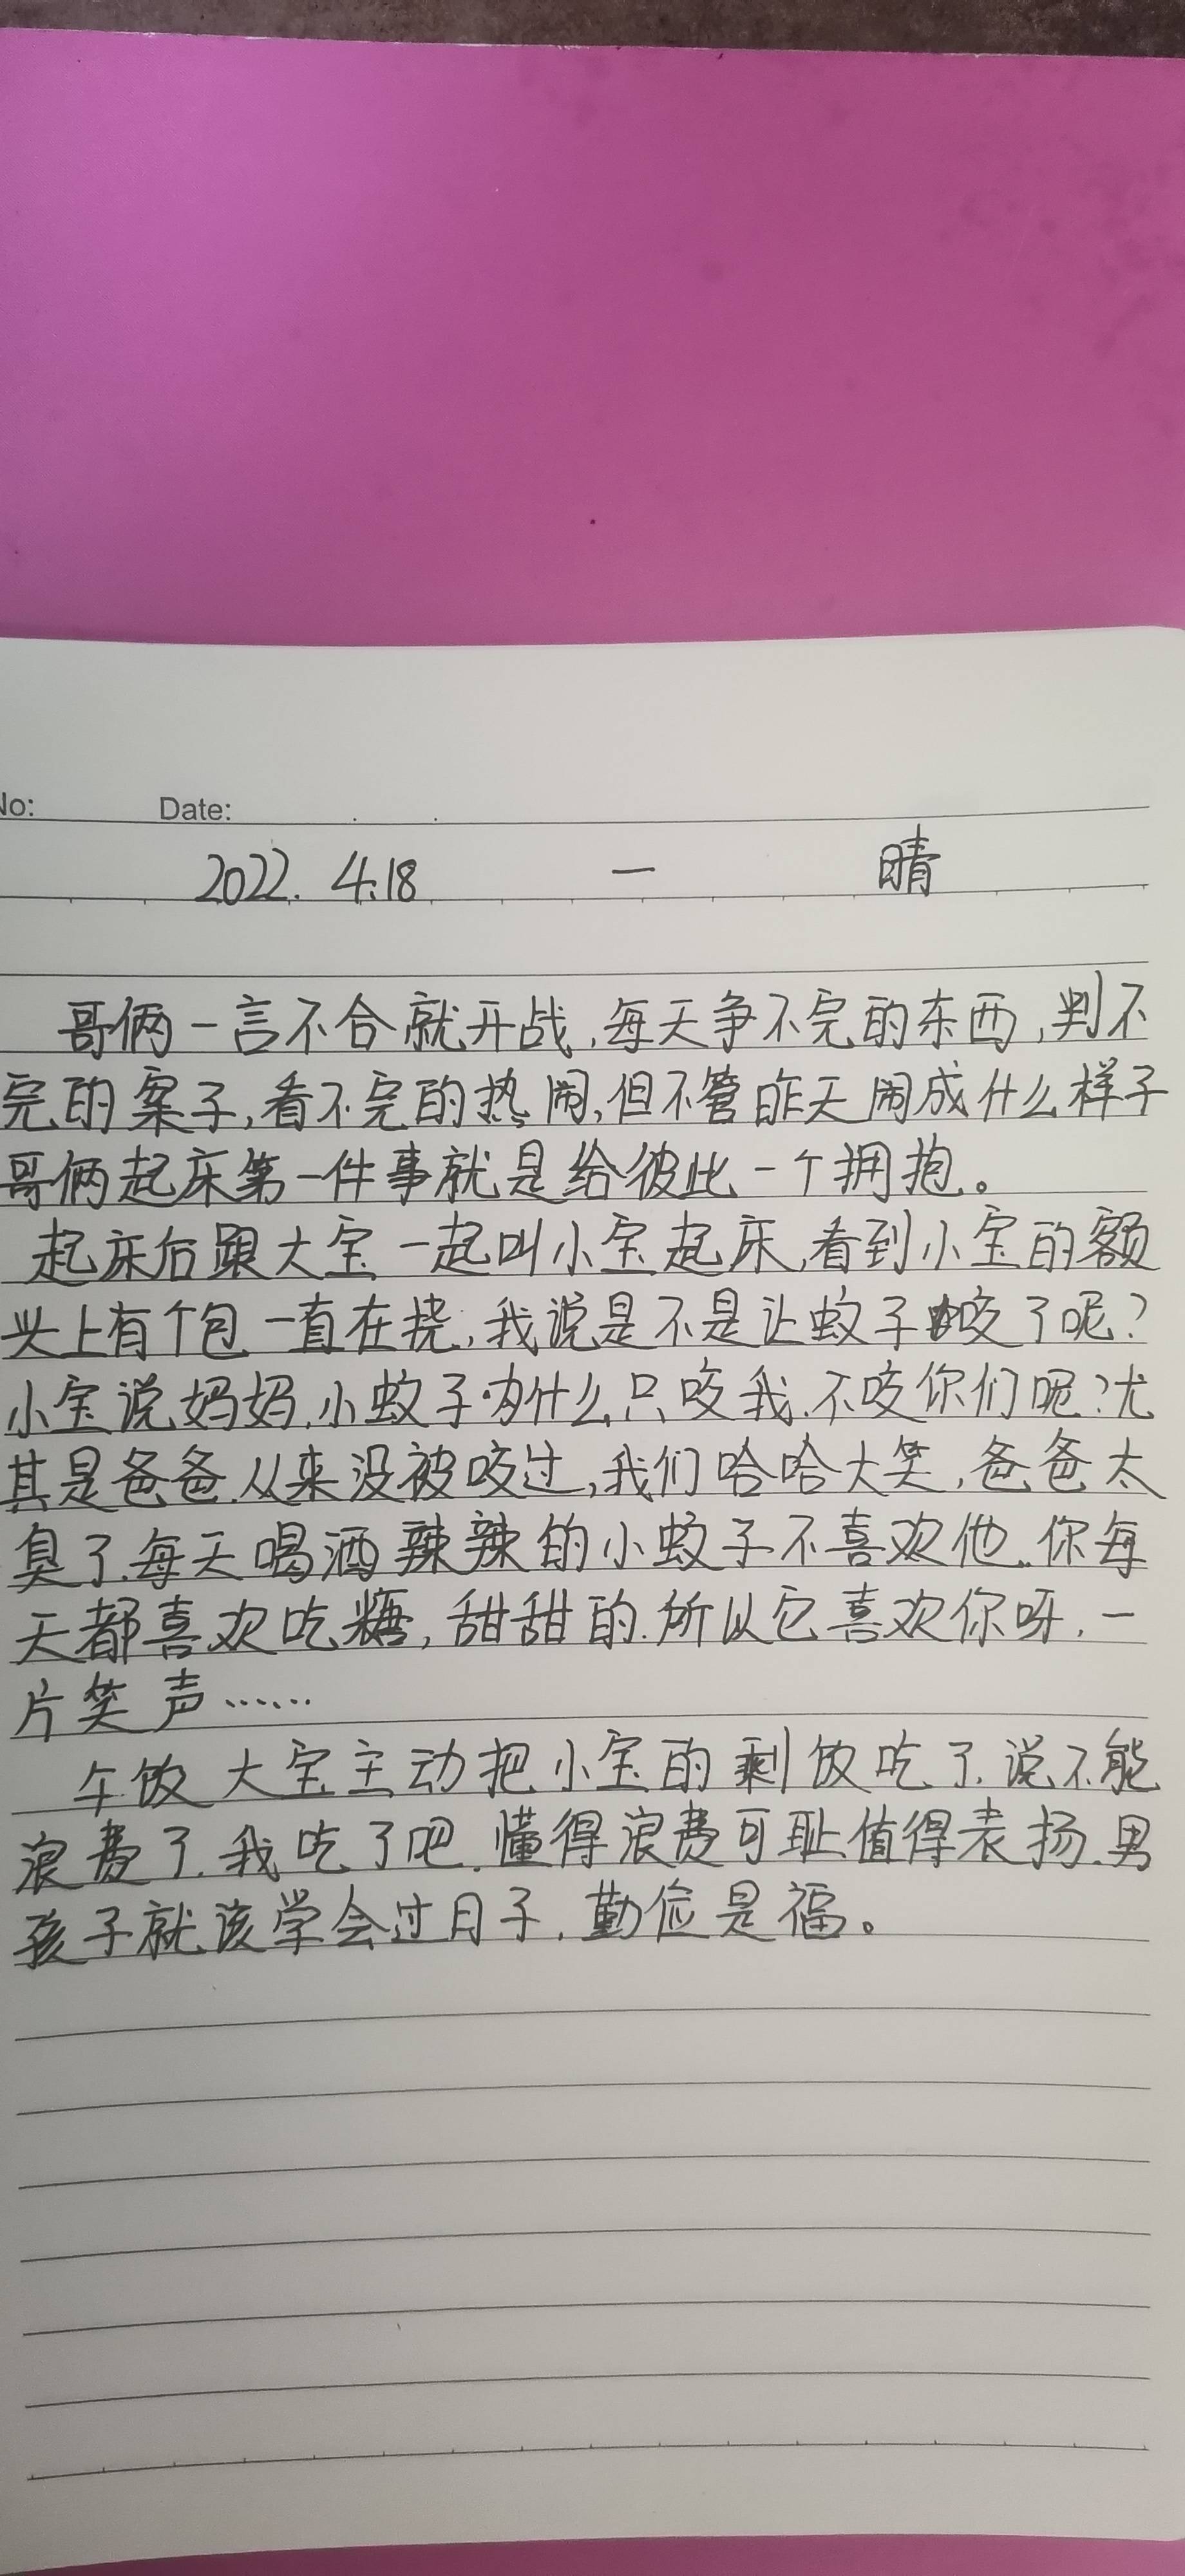 No: Date:
2022. 4.18 一 晴
哥俩一言不合就开战,每天争不完的东西,判不
完的案子,看不完的热闹,但不管昨天闹成什么样子
哥俩起床第一件事就是给彼此一个拥抱。
起床后跟大宝一起叫小宝起床,看到小宝的额
头上有个包一直在挠,我说是不是让蚊子咬了呢?
小宝说妈妈,小蚊子为什么只咬我.不咬你们呢?尤
其是爸爸.从来没被咬过,我们哈哈大笑,爸爸太
臭了.每天喝酒辣辣的小蚊子不喜欢他.你每
天都喜欢吃糖,甜甜的.所以它喜欢你呀.一
片笑声……
午饭大宝主动把小宝的剩饭吃了.说不能
浪费了.我吃了吧.懂得浪费可耻值得表扬.男
孩子就该学会过日子.勤俭是福。